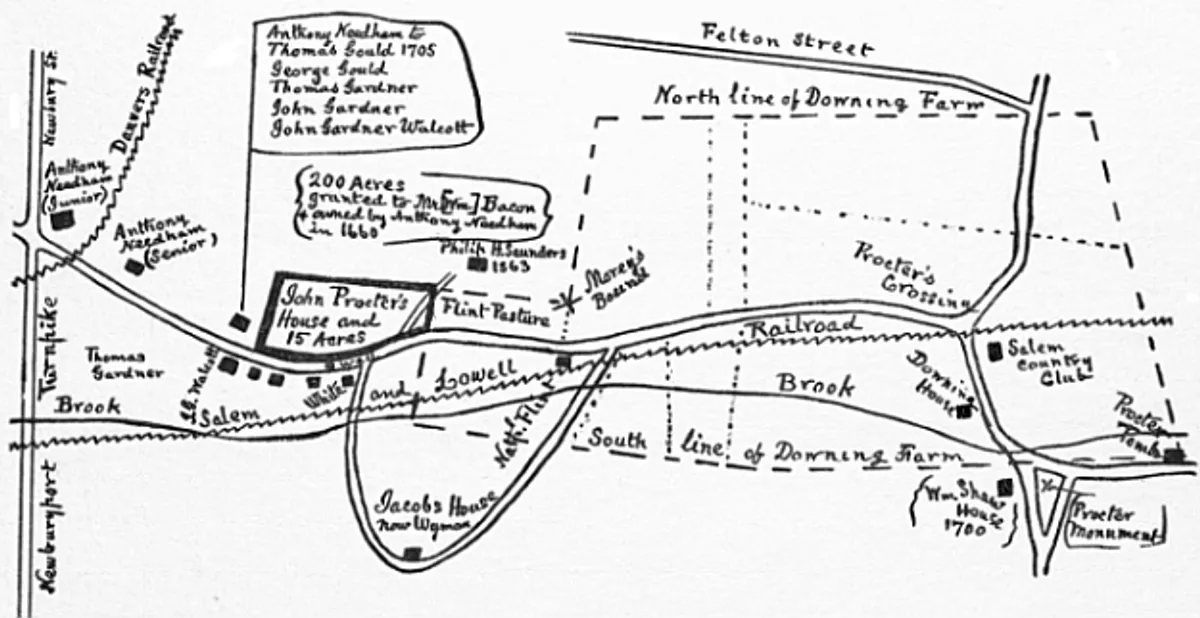 Anthony Needham to
Thomas Gould 1705
George Gould
Thomas Gardner
John Gardner
John Gardner Walcott
Felton Street
North line of Downing Farm
Newbury St.
Danvers Railroad
Anthony
Needham
(Junior)
Anthony
Needham
(Senior)
200 Acres
granted to Mr [Wm] Bacon
& owned by Anthony Needham
in 1660
Philip H. Saunders
1863
Morey's
Bound
Procter's
Crossing
John Procter's
House and
15 Acres
Flint Pasture
Railroad
Newburyport
Turnpike
Thomas
Gardner
Walcott
White
Salem
and
Lowell
Brook
Brook
Nath'l Flint
Downing
House
Salem
Country
Club
Procter
Tombs
South line of Downing Farm
Jacobs House
now Wyman
(Wm Shaw
House
1700)
Procter
Monument